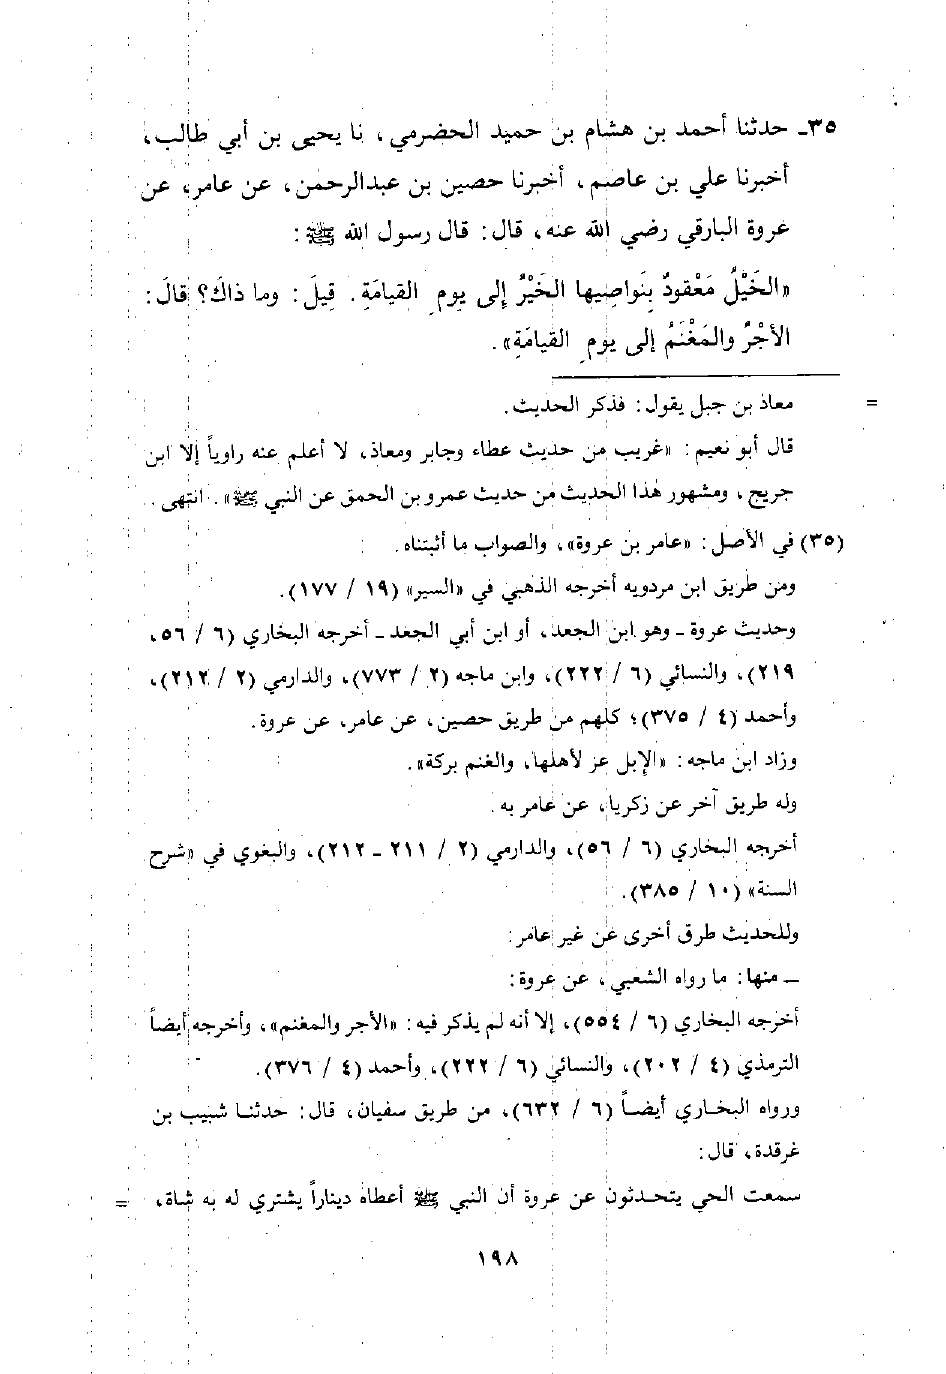 ٣٥ـ حدثنا أحمد بن هشام بن حميد الحضرمي، نا يحيى بن أبي طالب،
أخبرنا علي بن عاصم، أخبرنا حصين بن عبدالرحمن، عن عامر، عن
عروة البارقي رضي الله عنه، قال: قال رسول الله ﷺ:
«الخَيْلُ مَعْقودٌ بِنَواصِيها الخَيْرُ إلى يومِ القيامَةِ. قيلَ: وما ذاكَ؟ قالَ:
الأجْرُ والمَغْنَمُ إلى يومِ القيامَةِ».
= معاذ بن جبل يقول: فذكر الحديث.
قال أبو نعيم: «غريب من حديث عطاء وجابر ومعاذ، لا أعلم عنه راوياً إلا ابن
جريج، ومشهور هذا الحديث من حديث عمرو بن الحمق عن النبي ﷺ». انتهى.
(٣٥) في الأصل: «عامر بن عروة»، والصواب ما أثبتناه.
ومن طريق ابن مردويه أخرجه الذهبي في «السير» (١٩ / ١٧٧).
وحديث عروة ـ وهو ابن الجعد، أو ابن أبي الجعد ـ أخرجه البخاري (٦ / ٥٦،
٢١٩)، والنسائي (٦ / ٢٢٢)، وابن ماجه (٢ / ٧٧٣)، والدارمي (٢ / ٢١٢)،
وأحمد (٤ / ٣٧٥)؛ كلهم من طريق حصين، عن عامر، عن عروة.
وزاد ابن ماجه: «الإبل عز لأهلها، والغنم بركة».
وله طريق آخر عن زكريا، عن عامر به.
أخرجه البخاري (٦ / ٥٦)، والدارمي (٢ / ٢١١ ـ ٢١٢)، والبغوي في «شرح
السنة» (١٠ / ٣٨٥).
وللحديث طرق أخرى عن غير عامر:
ـ منها: ما رواه الشعبي، عن عروة:
أخرجه البخاري (٦ / ٥٥٤)، إلا أنه لم يذكر فيه: «الأجر والمغنم»، وأخرجه أيضاً
الترمذي (٤ / ٢٠٢)، والنسائي (٦ / ٢٢٢)، وأحمد (٤ / ٣٧٦).
ورواه البخاري أيضاً (٦ / ٦٣٢)، من طريق سفيان، قال: حدثنا شبيب بن
غرقدة، قال:
سمعت الحي يتحدثون عن عروة أن النبي ﷺ أعطاه ديناراً يشتري له به شاة، =
١٩٨